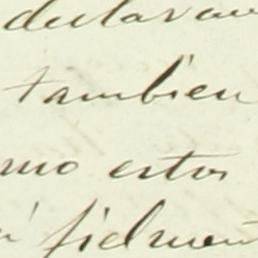 declaran
tambien
mo estos
i fielmen